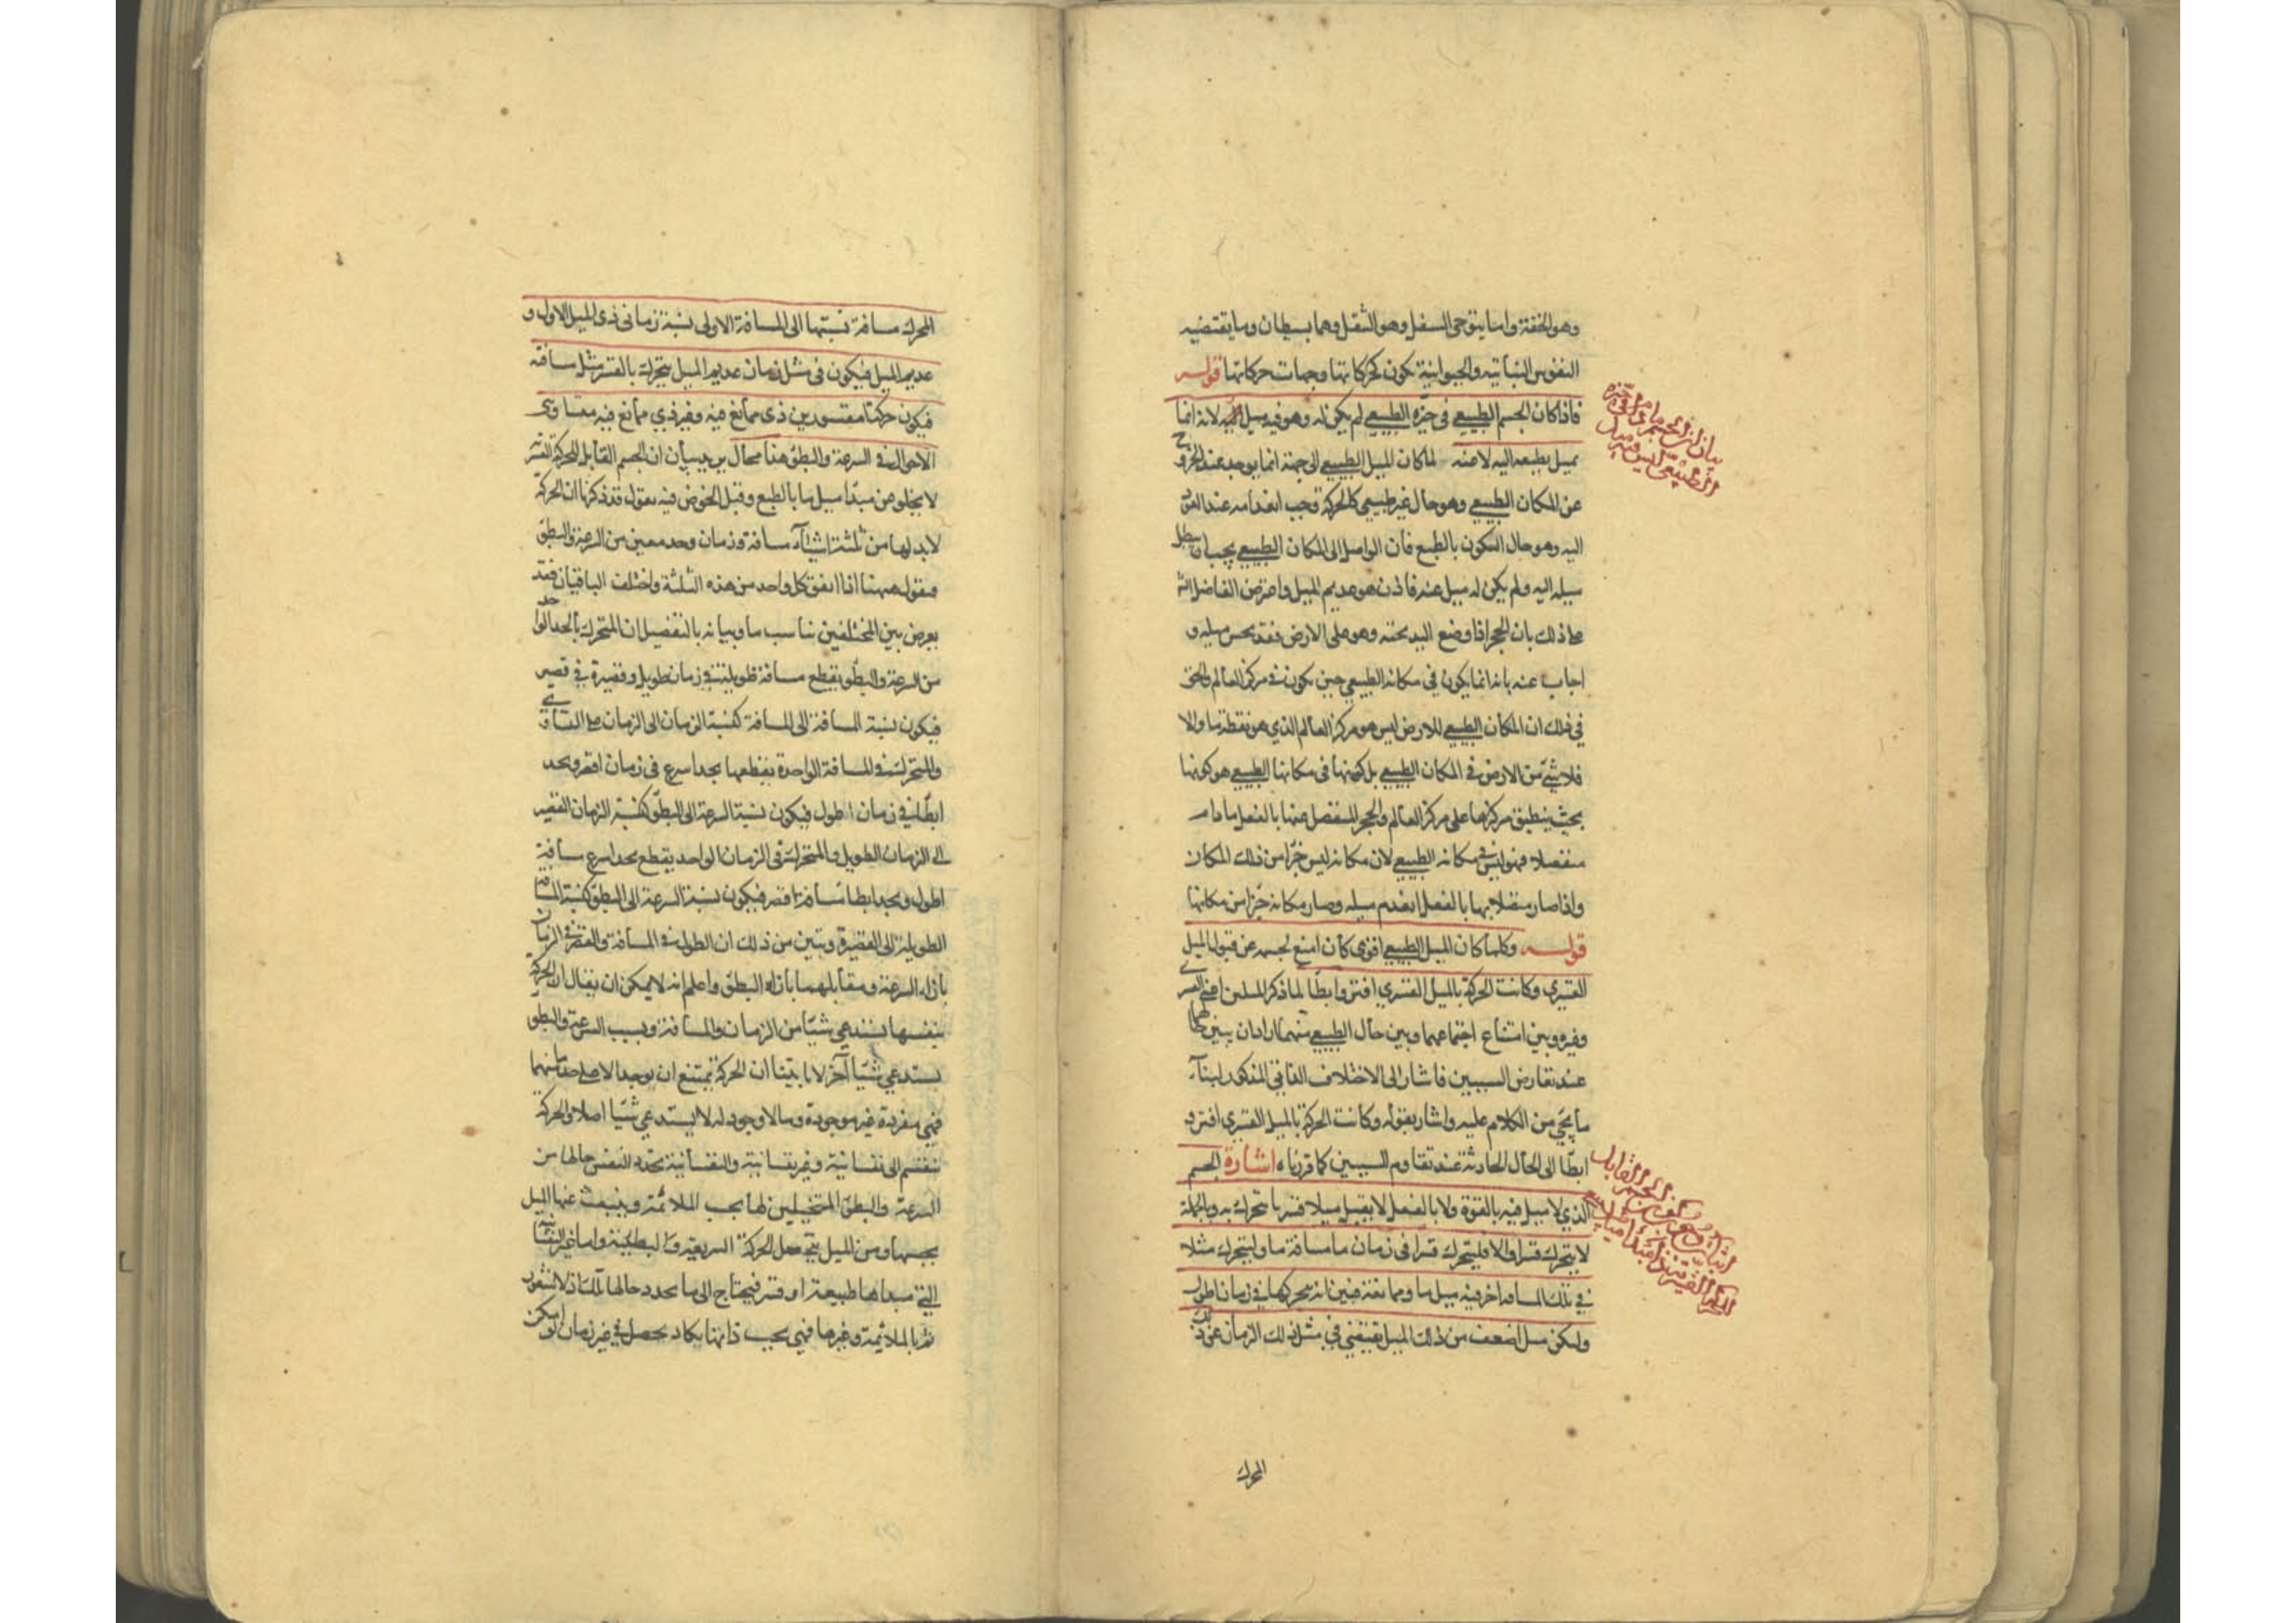 وهو الخفة واما يتوخى السفل وهو الثقل وهما بسيطان وما يقتضيه
النفوس النباتية والحيوانية تكون كحركاتها وجهات حركاتها قوله
فاذا كان الجسم الطبيعي في حيزه الطبيعي لم يكن له وهو فيه ميل لانه انما
يميل بطبعه اليه لا عنه لما كان الميل الطبيعي الى جهة انما يوجد عند الخروج
عن المكان الطبيعي وهو حال غير طبيعي كالحركة وجب انعدامه عند العود
اليه وهو حال السكون بالطبع فان الواصل الى المكان الطبيعي يجب ان يبطل
ميله اليه ولم يكن له ميل عنه فاذن هو عديم الميل واعترض الفاضل الشـ
على ذلك بان الحجر اذا وضع اليد تحته وهو على الارض فقد يحس ميله و
اجاب عنه بانه انما يكون في مكانه الطبيعي حين يكون في مركز العالم والحق
في ذلك ان المكان الطبيعي للارض ليس هو مركز العالم الذي هو نقطة ما والا
فلا شئ من الارض في المكان الطبيعي بل كونها في مكانها الطبيعي هو كونها
بحيث ينطبق مركزها على مركز العالم والحجر المنفصل عنها بالفعل ما دام
منفصلا فهو ليس في مكانه الطبيعي لان مكانه ليس جزا من ذلك المكان
واذا صار متصلا بها بالفعل انعدم ميله وصار مكانه جزا من مكانها
قوله وكلما كان الميل الطبيعي اقوى كان امنع لجسمه عن قبول الميل
القسري وكانت الحركة بالميل القسري افتر وابطأ لما ذكر الميلين اعني القسري
وغيره وبين امتناع اجتماعهما وبين حال الطبيعي منهما اراد ان يبين حالهما
عند تعارض السببين فاشار الى الاختلاف الذاتي المذكور لبناء
ما يجئ من الكلام عليه واشار بقوله وكانت الحركة بالميل القسري افتر و
ابطأ الى الحال الحادثة عند تقاوم السببين كما قررناه اشارة الجسم
الذي لا ميل فيه بالقوة ولا بالفعل لا يقبل ميلا قسريا يتحرك به وبالجملة
لا يتحرك قسرا والا فليتحرك قسرا في زمان ما مسافة ما وليتحرك مثلا
في تلك المسافة اخر فيه ميل ما وممانعة فبين انه يحركها في زمان اطول
وليكن ميل اضعف من ذلك الميل يقتضي في مثل ذلك الزمان عن ذلك
المحرك
المحرك مسافة نسبتها الى المسافة الاولى نسبة زماني ذي الميل الاول و
عديم الميل فيكون في مثل زمان عديم الميل يتحرك بالقسر مثل مسافته
فيكون حركتا مقسورين ذي ممانع فيه وغير ذي ممانع فيه متساوي
الاحوال في السرعة والبطؤ هذا محال يريد بيان ان الجسم القابل للحركة القسرية
لا يخلو عن مبدأ ميل ما بالطبع وقبل الخوض فيه نقول قد ذكرنا ان الحركة
لا بد لها من ثلثة اشياء مسافة وزمان وحد معين من السرعة والبطؤ
فنقول ههنا اذا اتفق كل واحد من هذه الثلثة واختلف الباقيان فقد
يعرض بين المختلفين تناسب ما وبيانه بالتفصيل ان المتحرك بالحد الواحد
من السرعة والبطؤ يقطع مسافة طويلة في زمان طويل وقصيرة في قصير
فيكون نسبة المسافة الى المسافة كنسبة الزمان الى الزمان على التساوي
والمتحرك في المسافة الواحدة يقطعها بحد اسرع في زمان اقصر وبحد
ابطأ في زمان اطول فيكون نسبة السرعة الى البطؤ كنسبة الزمان القصير
الى الزمان الطويل والمتحرك في الزمان الواحد يقطع بحد اسرع مسافة
اطول وبحد ابطا مسافة اقصر فيكون نسبة السرعة الى البطؤ كنسبة المسافة
الطويلة الى القصيرة وتبين من ذلك ان الطول في المسافة والقصر في الزمان
بازاء السرعة ومقابلهما بازاء البطؤ واعلم انه لا يمكن ان يقال ان الحركة
بنفسها تستدعي شيئا من الزمان والمسافة وبسبب السرعة والبطؤ
يستدعي شيئا آخر لانا بينا ان الحركة يمتنع ان يوجد الا على حد ما منهما
فهي مفردة غير موجودة وما لا وجود له لا يستدعي شيئا اصلا والحركة
تنقسم الى نفسانية وغير نفسانية والنفسانية يحدد النفس حالها من
السرعة والبطؤ المتخيلين لها بحسب الملائمة وينبعث عنها الميل
بحسبها ومن الميل يتحصل الحركة السريعة والبطيئة واما غير النفسانية
التي مبدأها طبيعة او قسر فيحتاج الى ما يحدد حالها تلك اذ لا شعور
ثم بالملائمة وغيرها فهي بحسب ذاتها يكاد يحصل في غير زمان لو امكن
بيان ان الجسم ما دام في حيزه
الطبيعي ليس فيه ميل